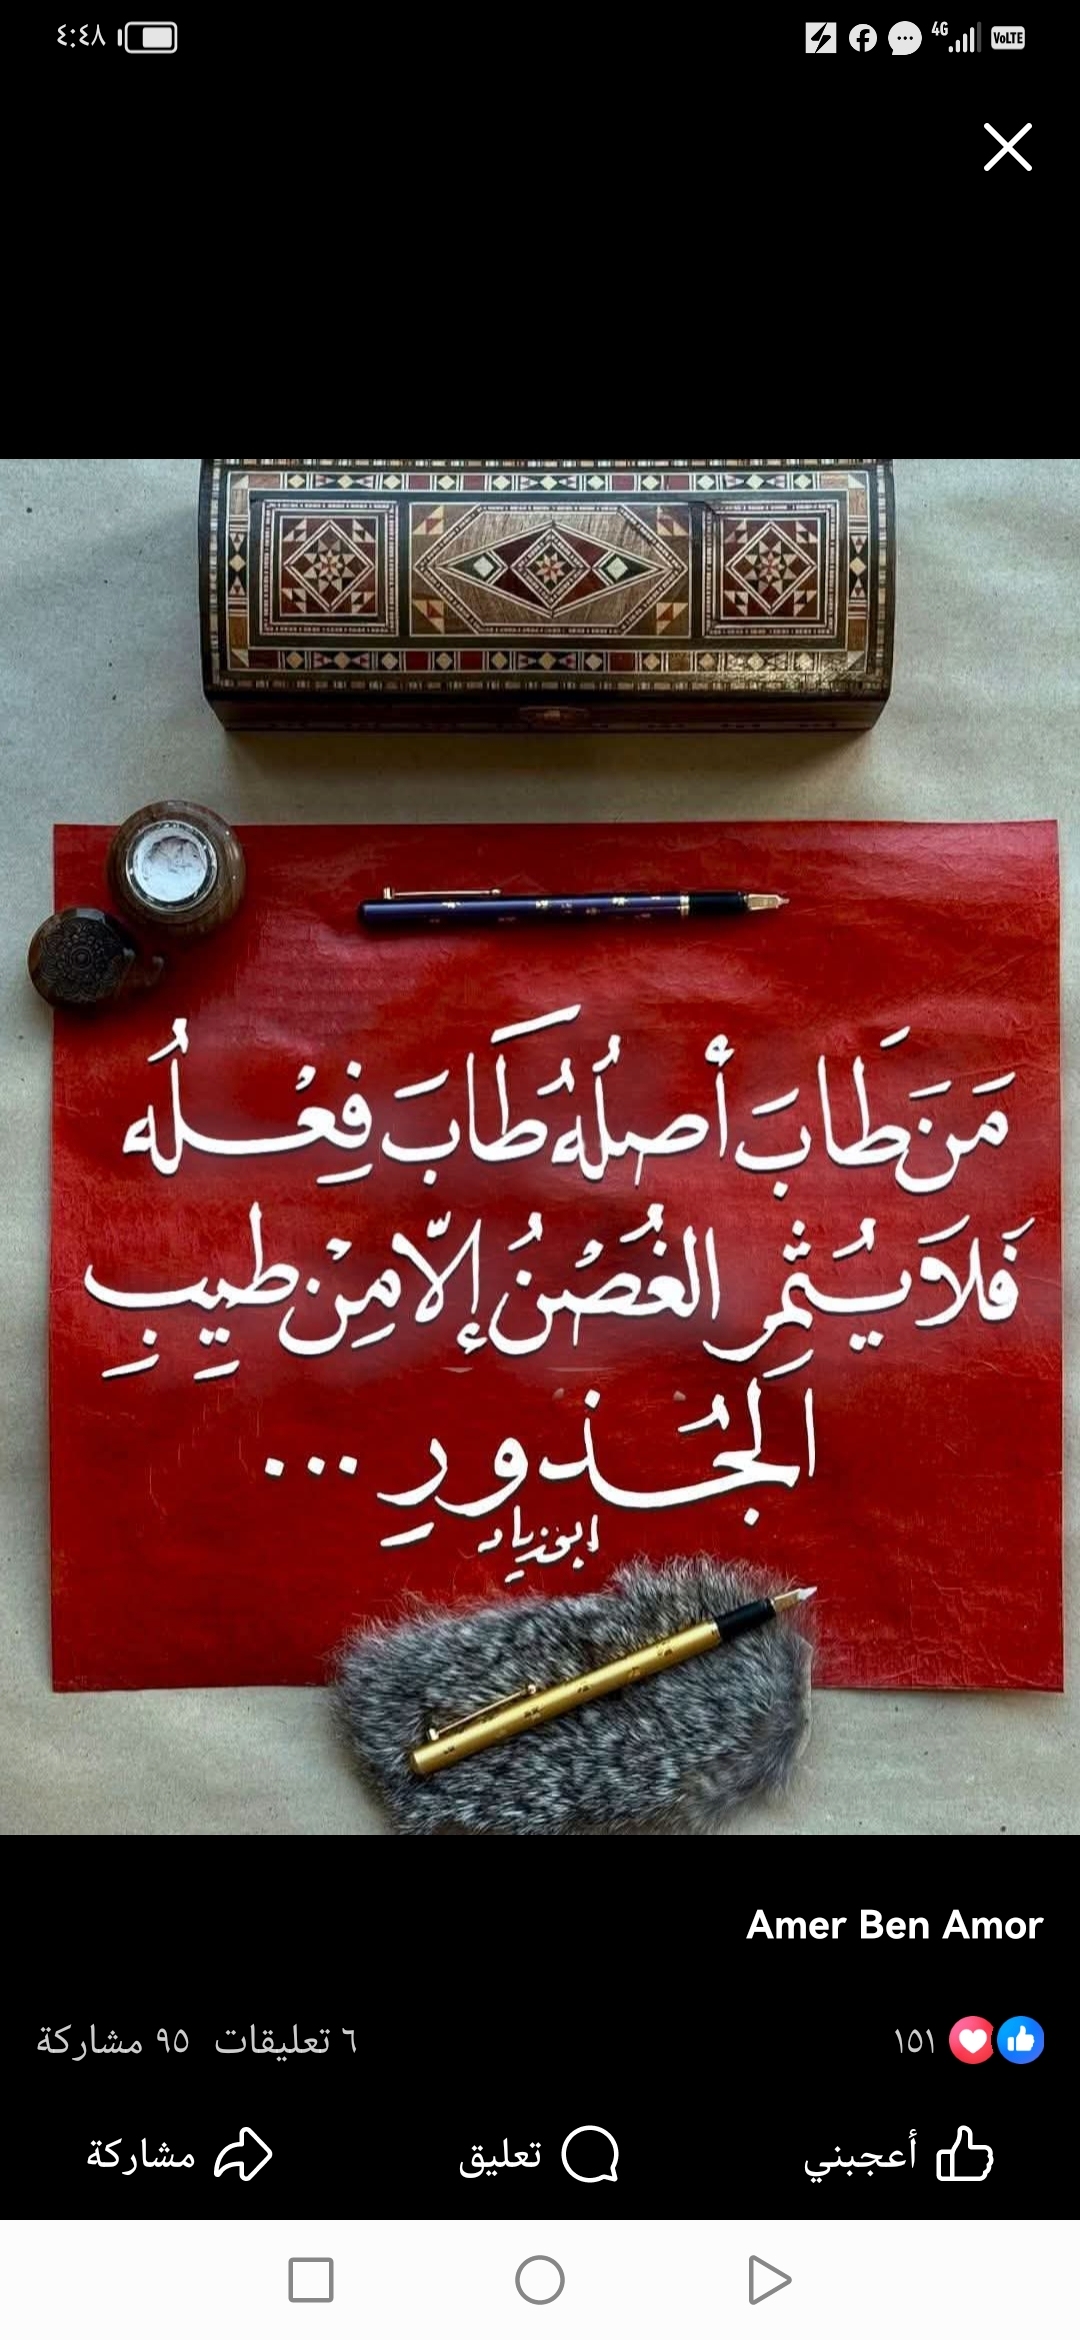 ٤:٤٨
4G VoLTE
مَنَ طَابَ أصلُهُ طَابَ فِعْلُه
فَلاَ يُثمِرِ الغُصْنُ إلاّ مِنْ طيِبِ
الجُذورِ ...
ابوزياد
Amer Ben Amor
١٥١ ٦ تعليقات ٩٥ مشاركة
أعجبني تعليق مشاركة